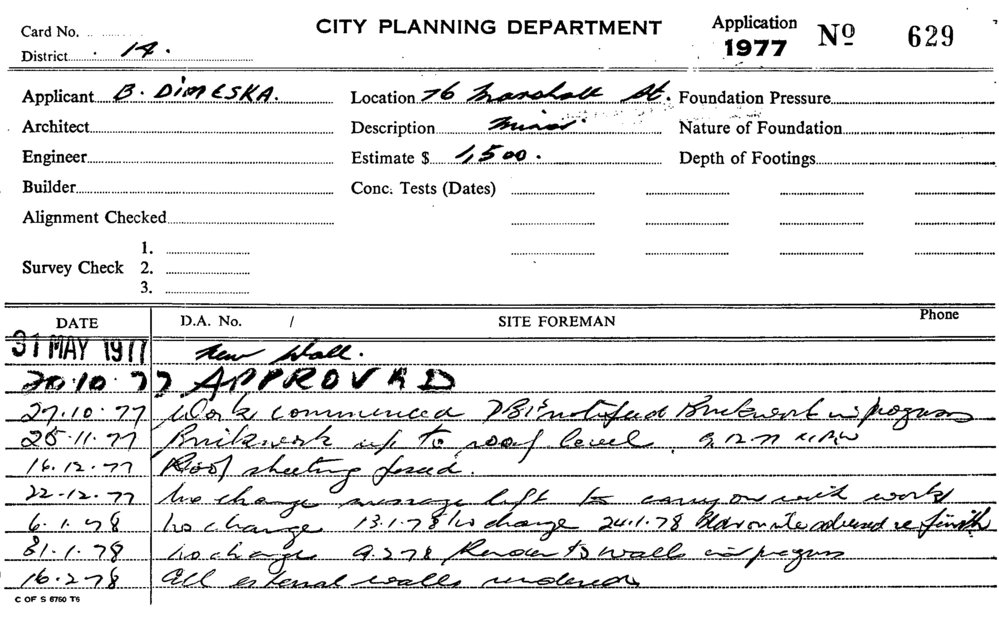 CITY PLANNING DEPARTMENT
Application 1977 Nº 629
Card No.
District 14.
Applicant B. DIMESKA. Location 76 Marshall St. Foundation Pressure
Architect Description Minor. Nature of Foundation
Engineer Estimate $ 1,500. Depth of Footings
Builder Conc. Tests (Dates)
Alignment Checked
1.
Survey Check 2.
3.
DATE D.A. No. / SITE FOREMAN Phone
31 MAY 1977 New Wall.
20.10.77 APPROVED
27.10.77 Work commenced notified Brickwork in progress
25.11.77 Brickwork up to roof level 9.12.77
16.12.77 Roof sheeting fixed.
22.12.77 No change message left to carry on with work
6.1.78 No change 13.1.78 No change 24.1.78 on site advised re finish
31.1.78 No change 9.2.78 Render to walls in progress
16.2.78 All external walls rendered
C OF S 6750 T6